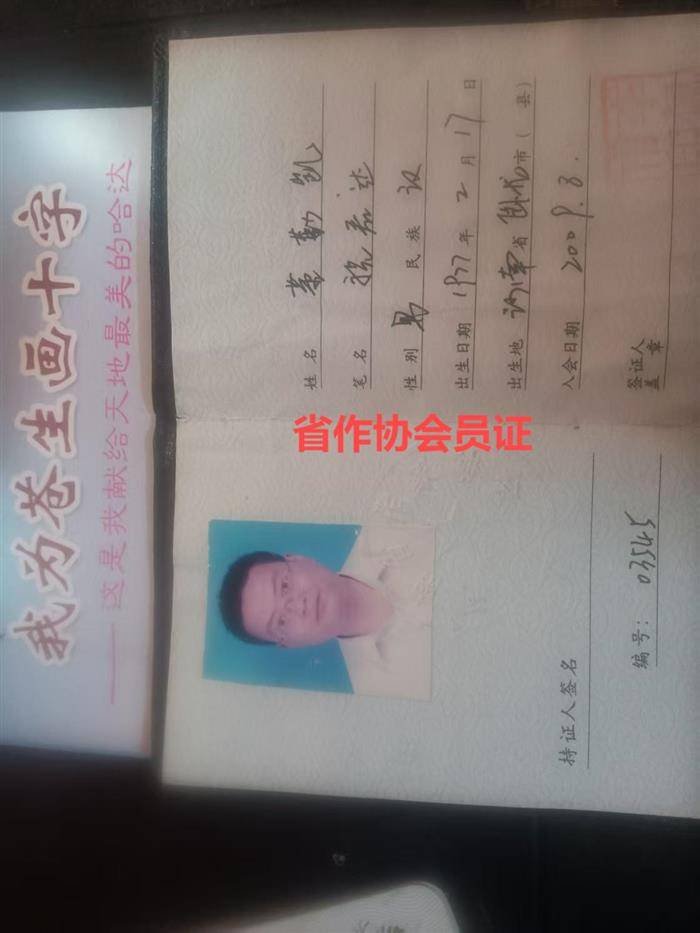 我为苍生画十字
——这是我献给天地最美的哈达
省作协会员证
持证人签名
编号：03545
姓名
笔名
性别 男 民族 汉
出生日期 1977年2月17日
出生地 河南省 市（县）
入会日期 2009.8.
签证人
盖章